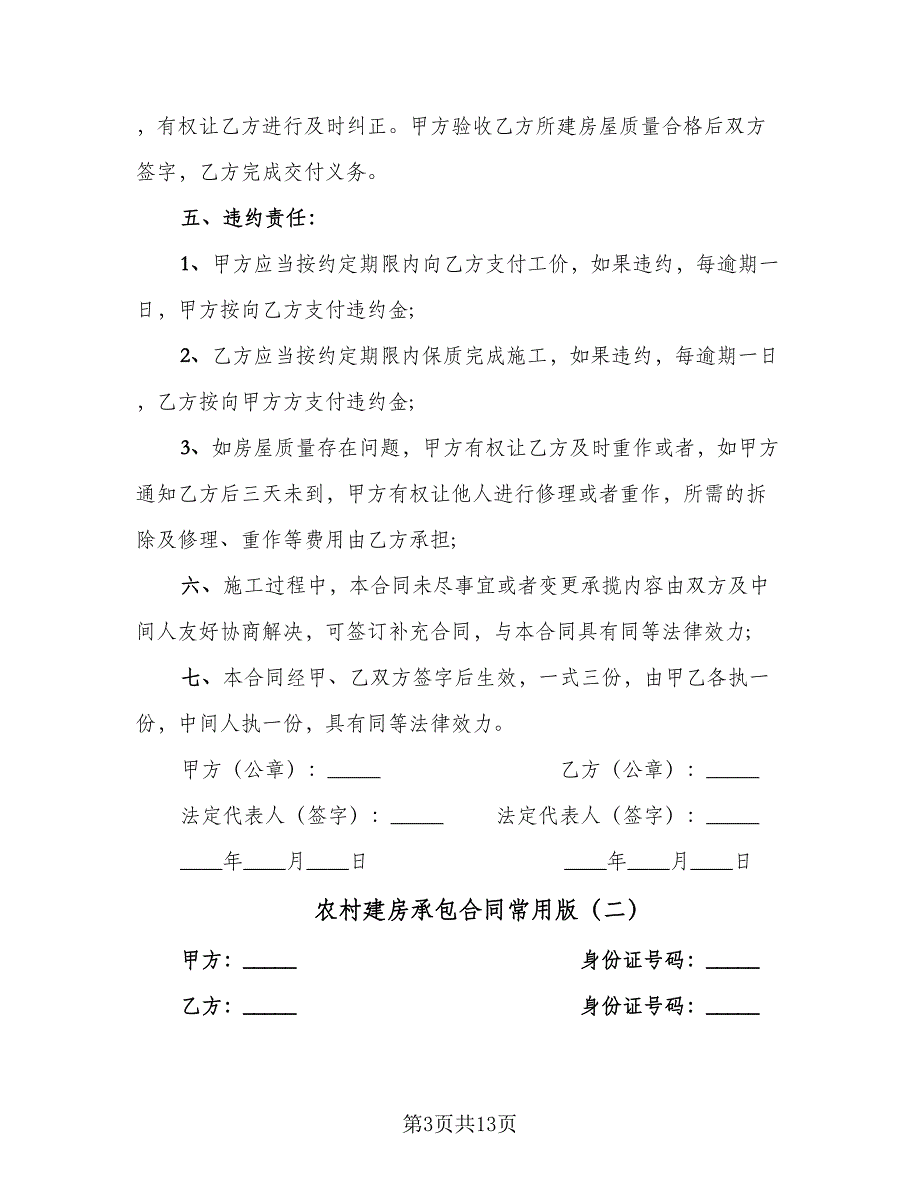 ，有权让乙方进行及时纠正。甲方验收乙方所建房屋质量合格后双方
签字，乙方完成交付义务。
五、违约责任：
1、甲方应当按约定期限内向乙方支付工价，如果违约，每逾期一
日，甲方按向乙方支付违约金;
2、乙方应当按约定期限内保质完成施工，如果违约，每逾期一日
，乙方按向甲方方支付违约金;
3、如房屋质量存在问题，甲方有权让乙方及时重作或者，如甲方
通知乙方后三天未到，甲方有权让他人进行修理或者重作，所需的拆
除及修理、重作等费用由乙方承担;
六、施工过程中，本合同未尽事宜或者变更承揽内容由双方及中
间人友好协商解决，可签订补充合同，与本合同具有同等法律效力;
七、本合同经甲、乙双方签字后生效，一式三份，由甲乙各执一
份，中间人执一份，具有同等法律效力。
甲方（公章）：_____ 乙方（公章）：_____
法定代表人（签字）：_____ 法定代表人（签字）：_____
____年____月____日 ____年____月____日
农村建房承包合同常用版（二）
甲方：_____ 身份证号码：_____
乙方：_____ 身份证号码：_____
第3页共13页